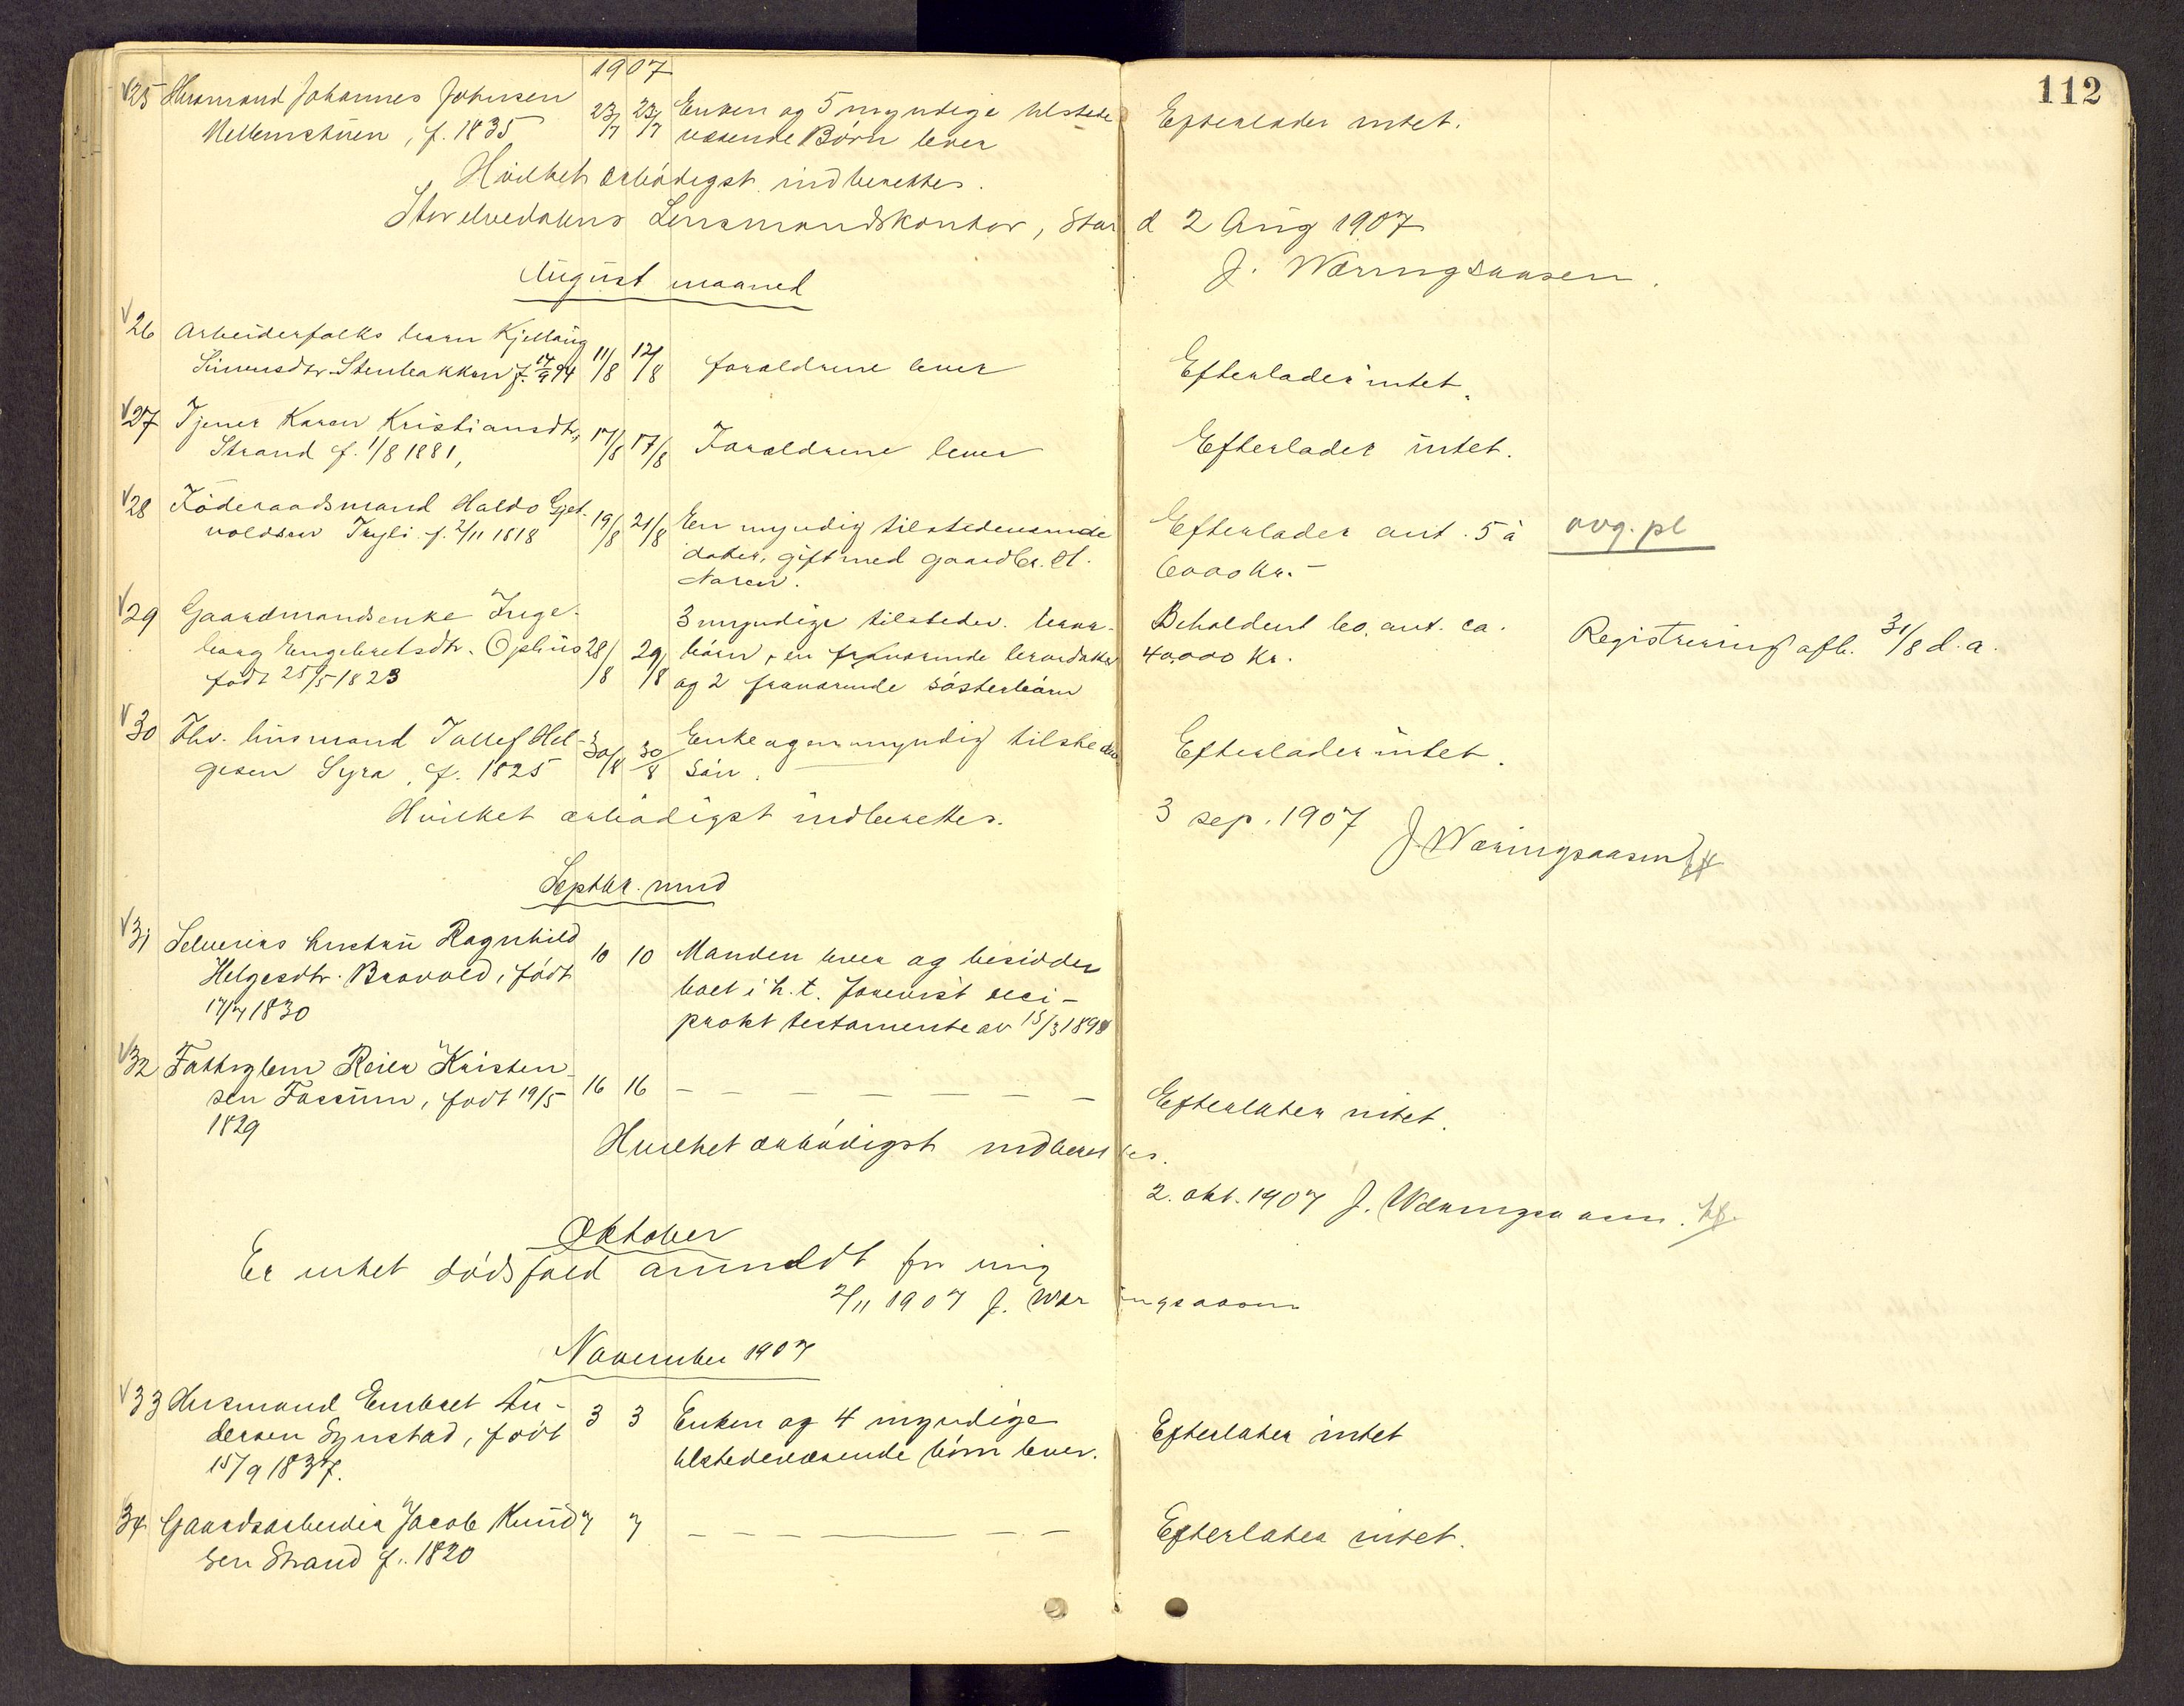 112
1907
25 Husmand Johannes Johnsen 23/7 23/7 Enken og 5 myndige tilstede Efterlader intet.
Mellemstuen, f. 1835 værende Børn lever
Hvilket ærbødigst indberettes.
Storelvedalens Lensmandskontor, Stai d 2 Aug 1907
J. Wæringsaasen.
August maaned
26 Arbeiderfolks barn Kjellaug 11/8 12/8 foraldrene lever Efterlader intet.
Simensdtr. Stenbakken f. 14/9 94
27 Tjener Karen Kristiansdtr, 17/8 17/8 Foraldrene lever Efterlader intet.
Strand f. 1/8 1881,
28 Föderaadsmand Haldo Gjet- 19/8 21/8 En myndig tilstedeværende Efterlader ant. 5 à avg. pl
voldsen Tryli f. 2/11 1818 datter, gift med gaardbr. H. 6000 Kr. -
Naren.
29 Gaardmandsenke Inge- 3 myndige tilstedev. barne- Beholdent bo, ant. ca.
borg Engebretsdtr. Ophus 28/8 29/8 börn, en fraværende brordatter 40,000 Kr. Registrering afh. 31/8 d.a.
født 25/5 1823 og 2 fraværende sösterbörn
30 Fhv. husmand Tollef Hel- 30/8 30/8 Enke og en myndig tilstedev. Efterlader intet.
gesen Syra, f. 1825 sön.
Hvilket ærbødigst indberettes. 3 sep. 1907
J. Wæringsaasen
Septbr. mnd
31 Selveiers hustru Ragnhild 10 10 Manden lever og besidder
Helgesdtr. Brovold, født boet i h.t. foreviist reci-
17/7 1830 prokt testamente av 15/3 1898
32 Fattiglem Reier Kristen- 16 16 — — — — — — Efterlater intet.
sen Fossum, født 19/5
1829
Hvilket ærbödigst indberettes.
2. okt. 1907 J. Wæringsaasen.
Oktober
Er intet dödsfald anmeldt for mig
2/11 1907 J. Wæringsaasen
November 1907
33 Husmand Embret An- 3 3 Enken og 4 myndige Efterlater intet
dersen Synstad, født tilstedeværende börn lever.
15/9 1837.
34 Gaardsarbeider Jacob Knud 7 7 — — — — — Efterlater intet.
sen Strand f. 1820